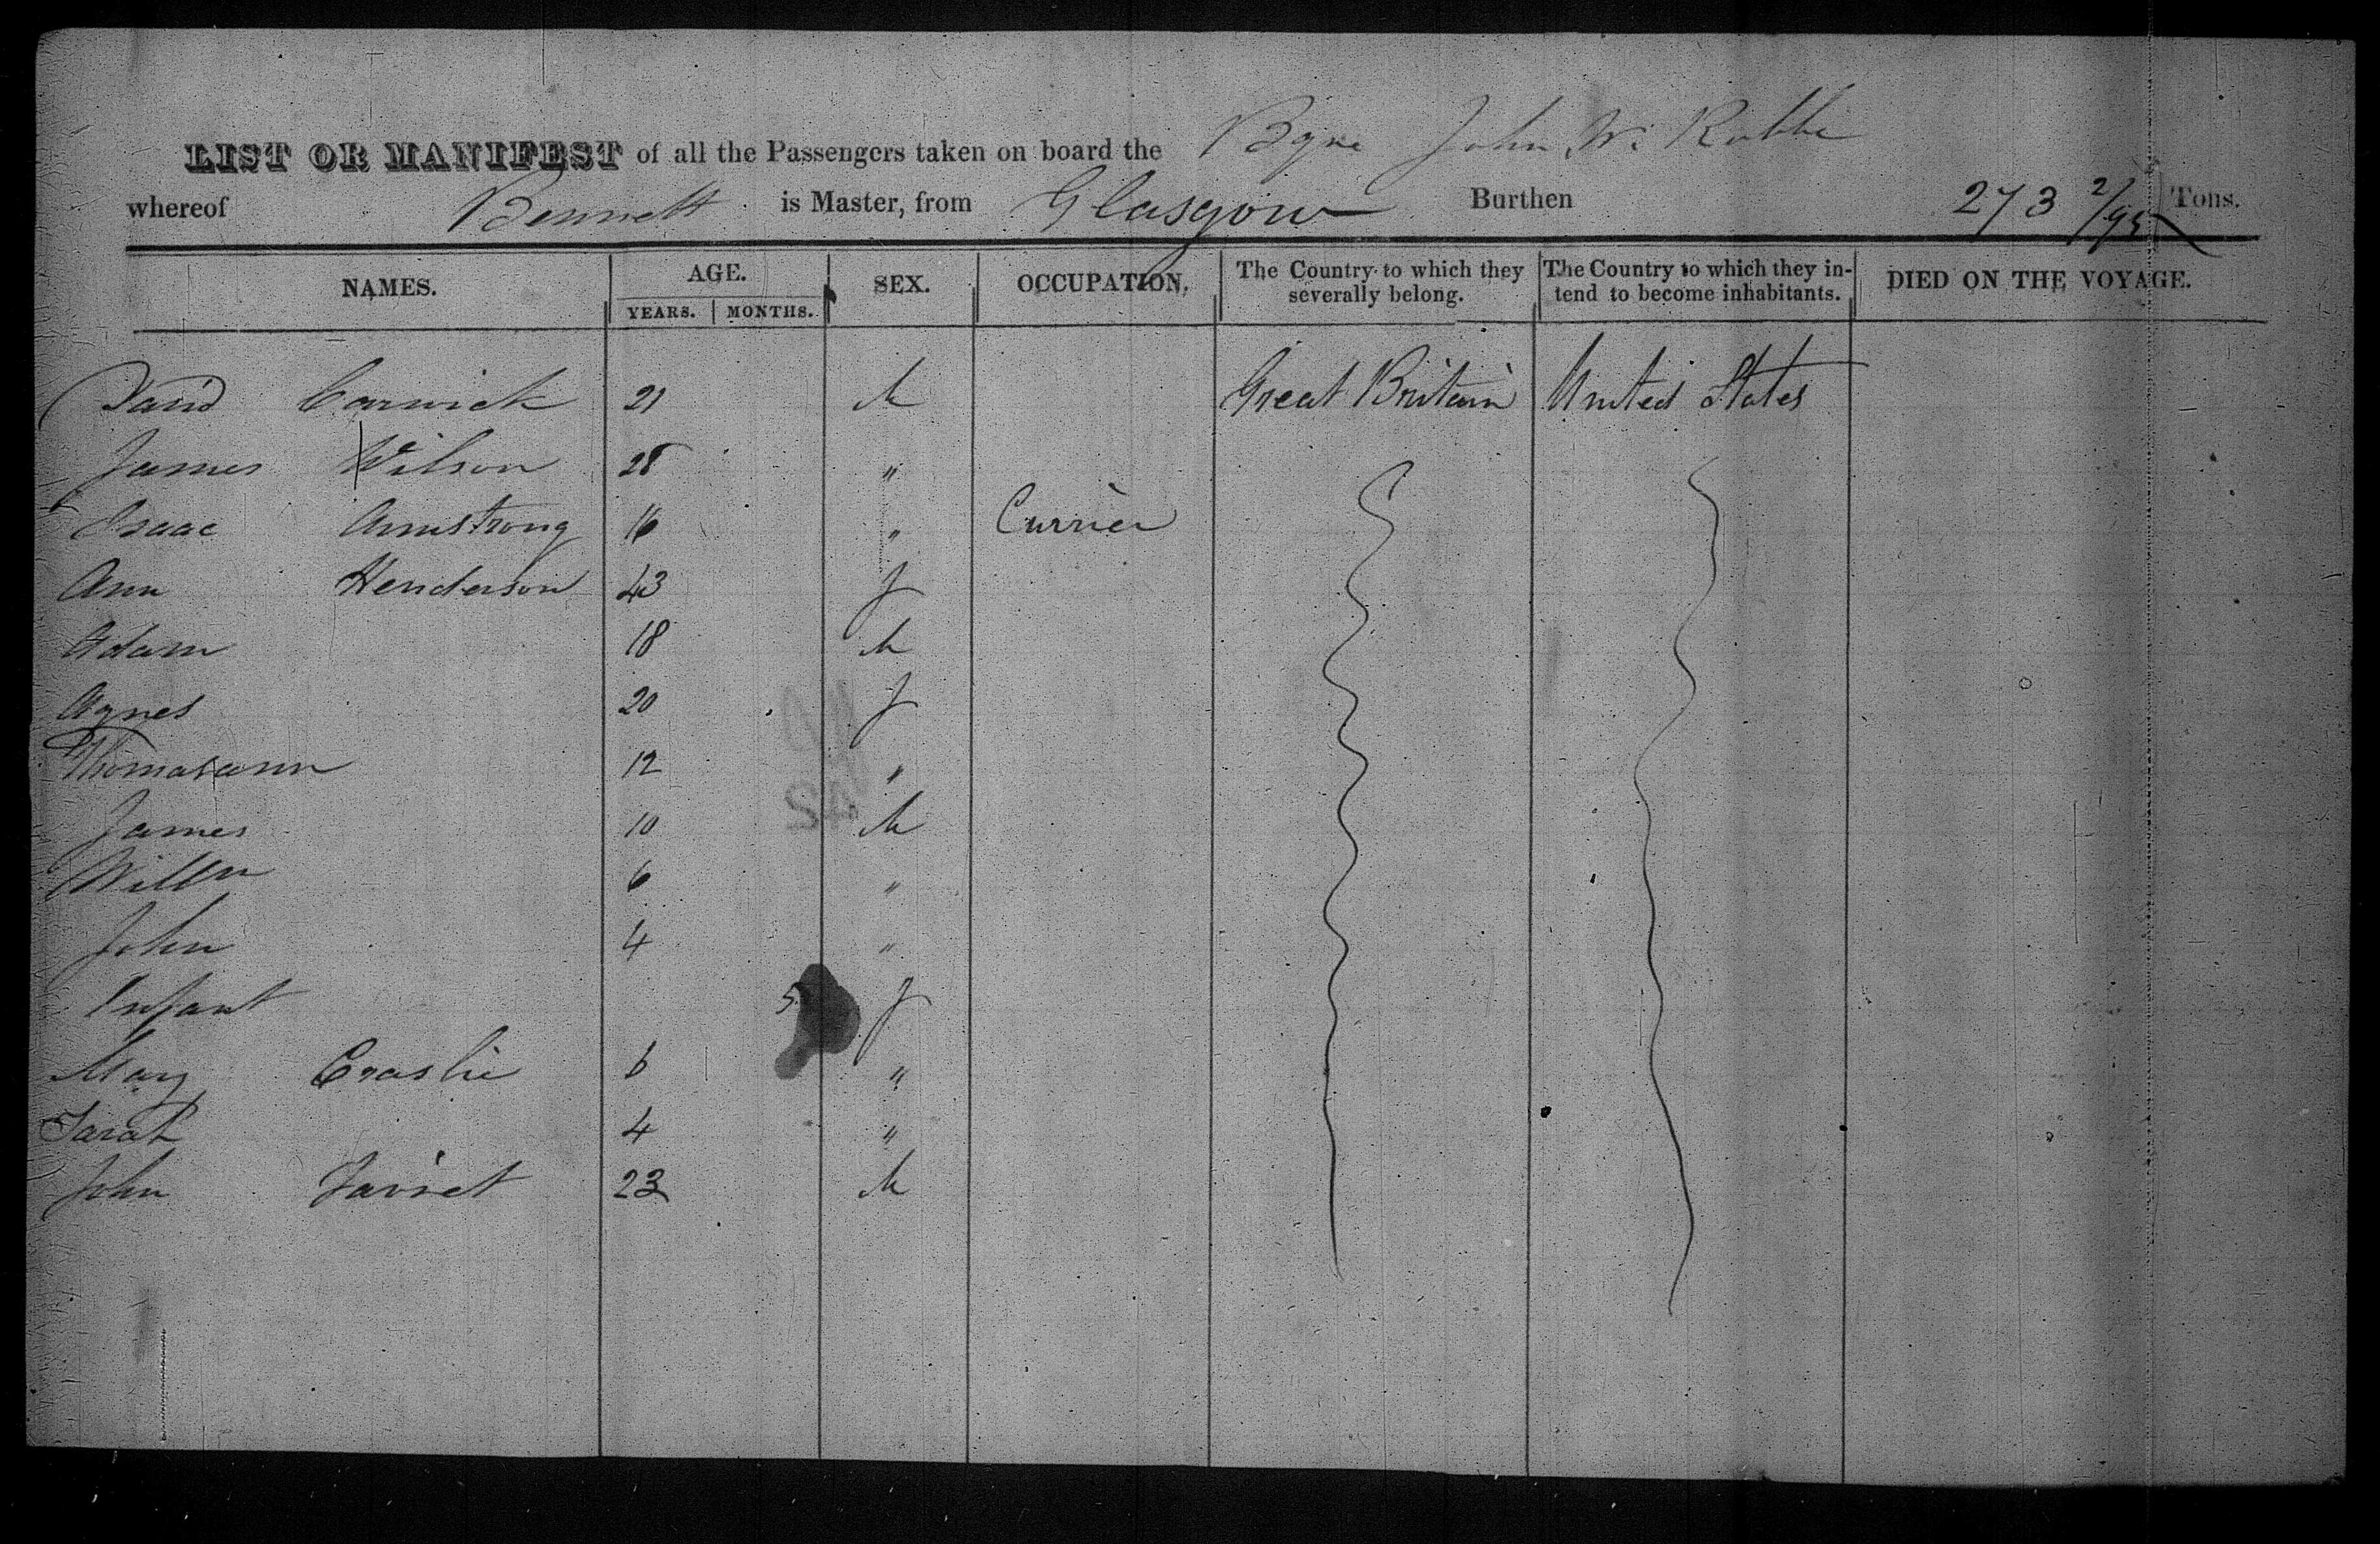 LIST OR MANIFEST of all the Passengers taken on board the Bque John W.
whereof Bennett is Master, from Glasgow Burthen 273 2/95 Tons.
NAMES. AGE. SEX. OCCUPATION. The Country to which they severally belong. The Country to which they intend to become inhabitants. DIED ON THE VOYAGE.
YEARS. MONTHS.
David Carwick 21 M Great Britain United States
James Wilson 28 "
Isaac Armstrong 16 " Currier
Ann Henderson 43 f
Adam 18 M
Agnes 20 f
Thomasann 12 "
James 10 M
Willm 6 "
John 4 "
Infant 5 f
Mary 6 "
Sarah 4 "
John 23 M